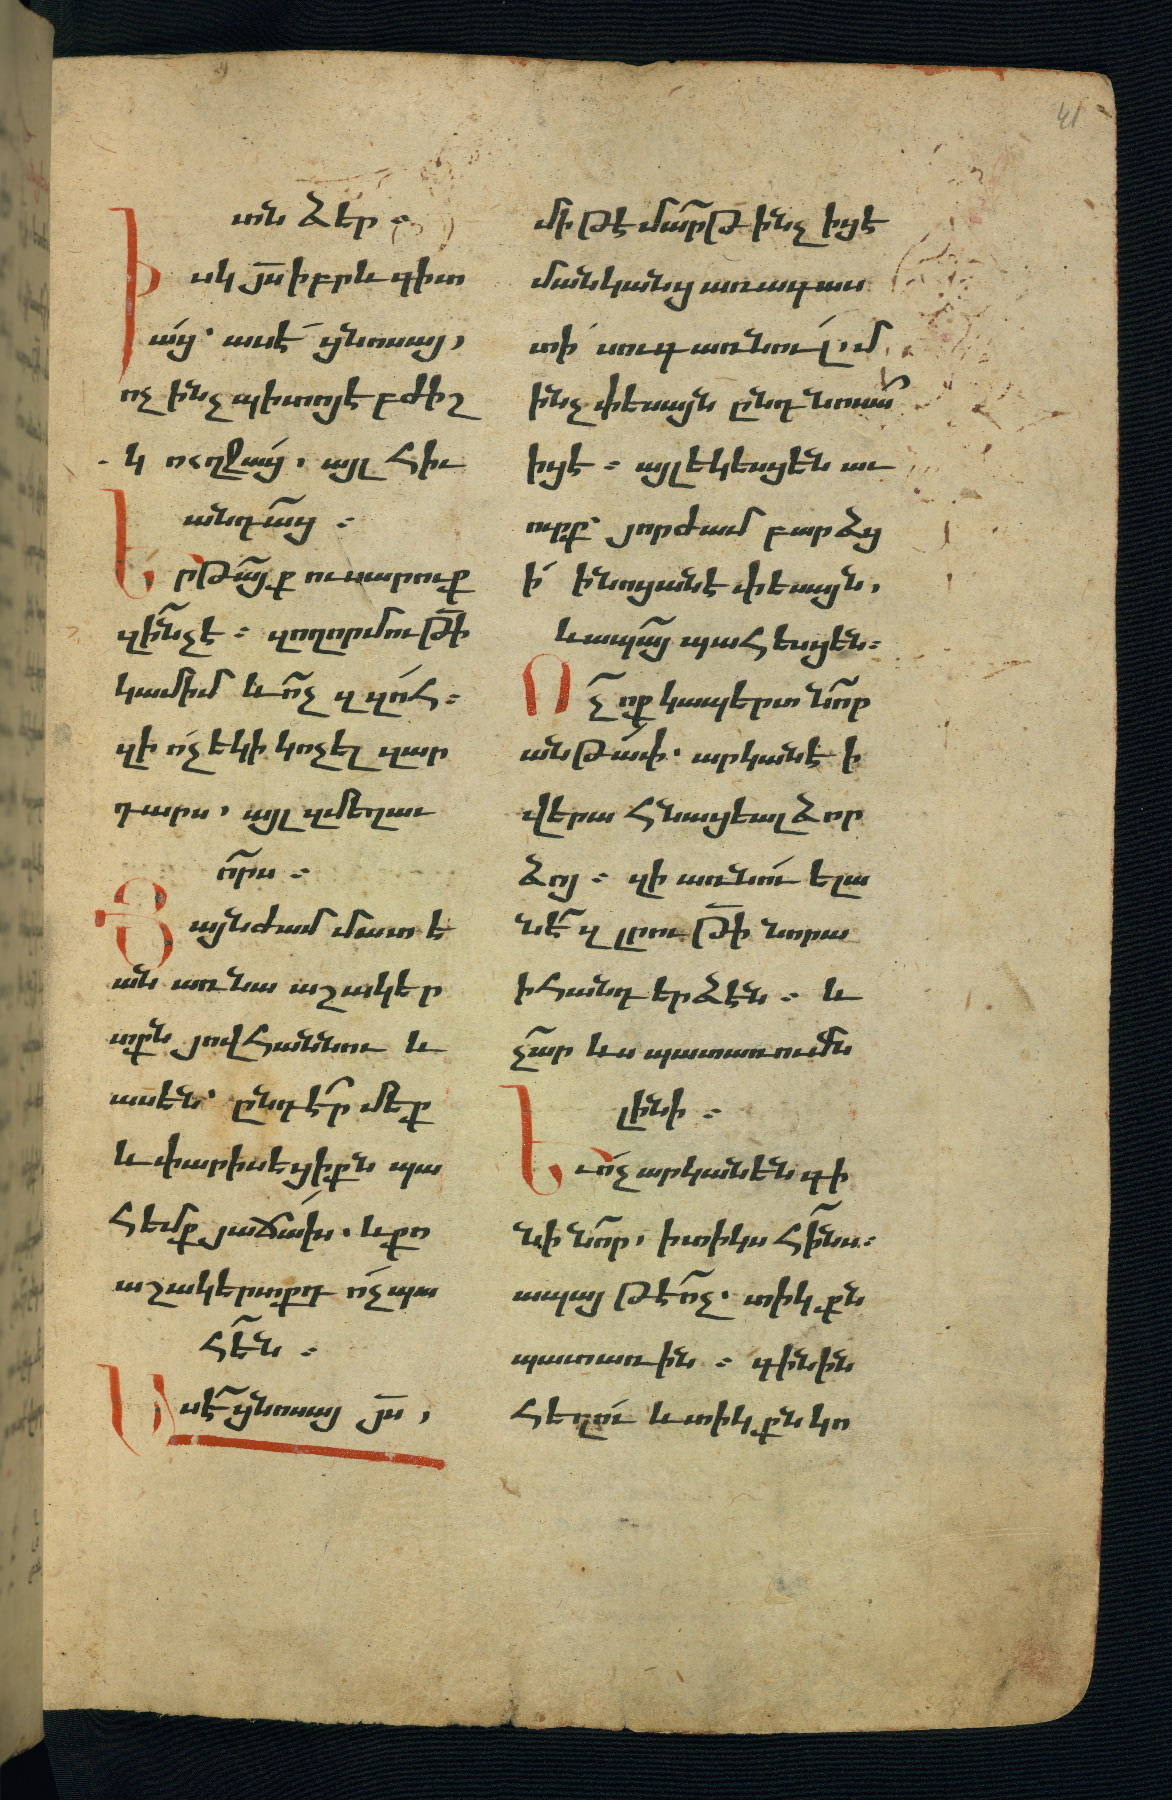 տն ձեր։
Իսկ յս իբրև գիտ
աց՝ ասէ ցնոսայ,
ոչ ինչ պիտոյէ բժիշ
կ ողջաց, այլ հիւ
անդաց։
Երթայք ուսարուք
զինչ է։ զողորմութի
կամիմ և ոչ զզոհ։
զի ոչ եկի կոչել զար
դարս, այլ զմեղաւ
որս։
Յայնժամ մատ ե
ան առ նա աշակեր
տքն յովհաննու և
ասեն՝ ընդէր մեք
և փարիսեցիքն պա
հեմք յաճախ. և քո
աշակերտքդ ոչ պա
հեն։
Ասէ ցնոսայ յս,
մի թէ մարթ ինչ իցէ
մանկանց առագաս
տի՝ սուգ առնուլ. մ
ինչ փեսայն ընդ նոսա
իցէ։ այլ եկեսցեն աւ
ուրք՝ յորժամ բարձց
ի՛ ի նոցանէ փեսայն,
և ապայ պահեսցեն։
Ոչ ոք կապերտ նոր
անթափ՝ արկանէ ի
վերա հնացեալ ձոր
ձոյ։ զի առնու ելա
նէ զլրութի նորա
ի հանդերձէն։ և
չար ևս պատառումն
լինի։
Եւ ոչ արկանեն գի
նի նոր, ի տիկս հինս։
ապայ թէ ոչ՝ տիկքն
պատառին։ գինին
հեղու և տիկքն կո
41